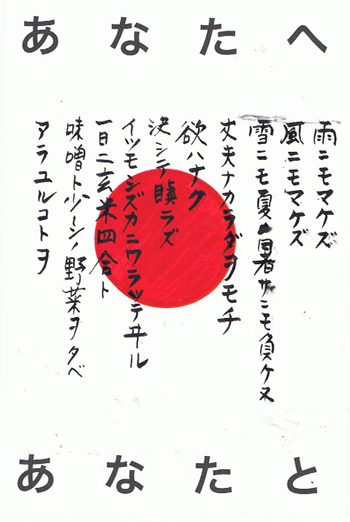 あなたへ
雨ニモマケズ
風ニモマケズ
雪ニモ夏ノ暑サニモ負ケヌ
丈夫ナカラダヲモチ
欲ハナク
決シテ瞋ラズ
イツモシズカニワラッテヰル
一日ニ玄米四合ト
味噌ト少シノ野菜ヲタベ
アラユルコトヲ
あなたと